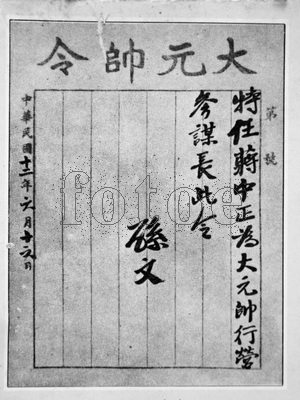 大元帥令
第　號
特任蔣中正為大元帥行營
參謀長此令
孫文
中華民國十二年六月十六日
fotoe